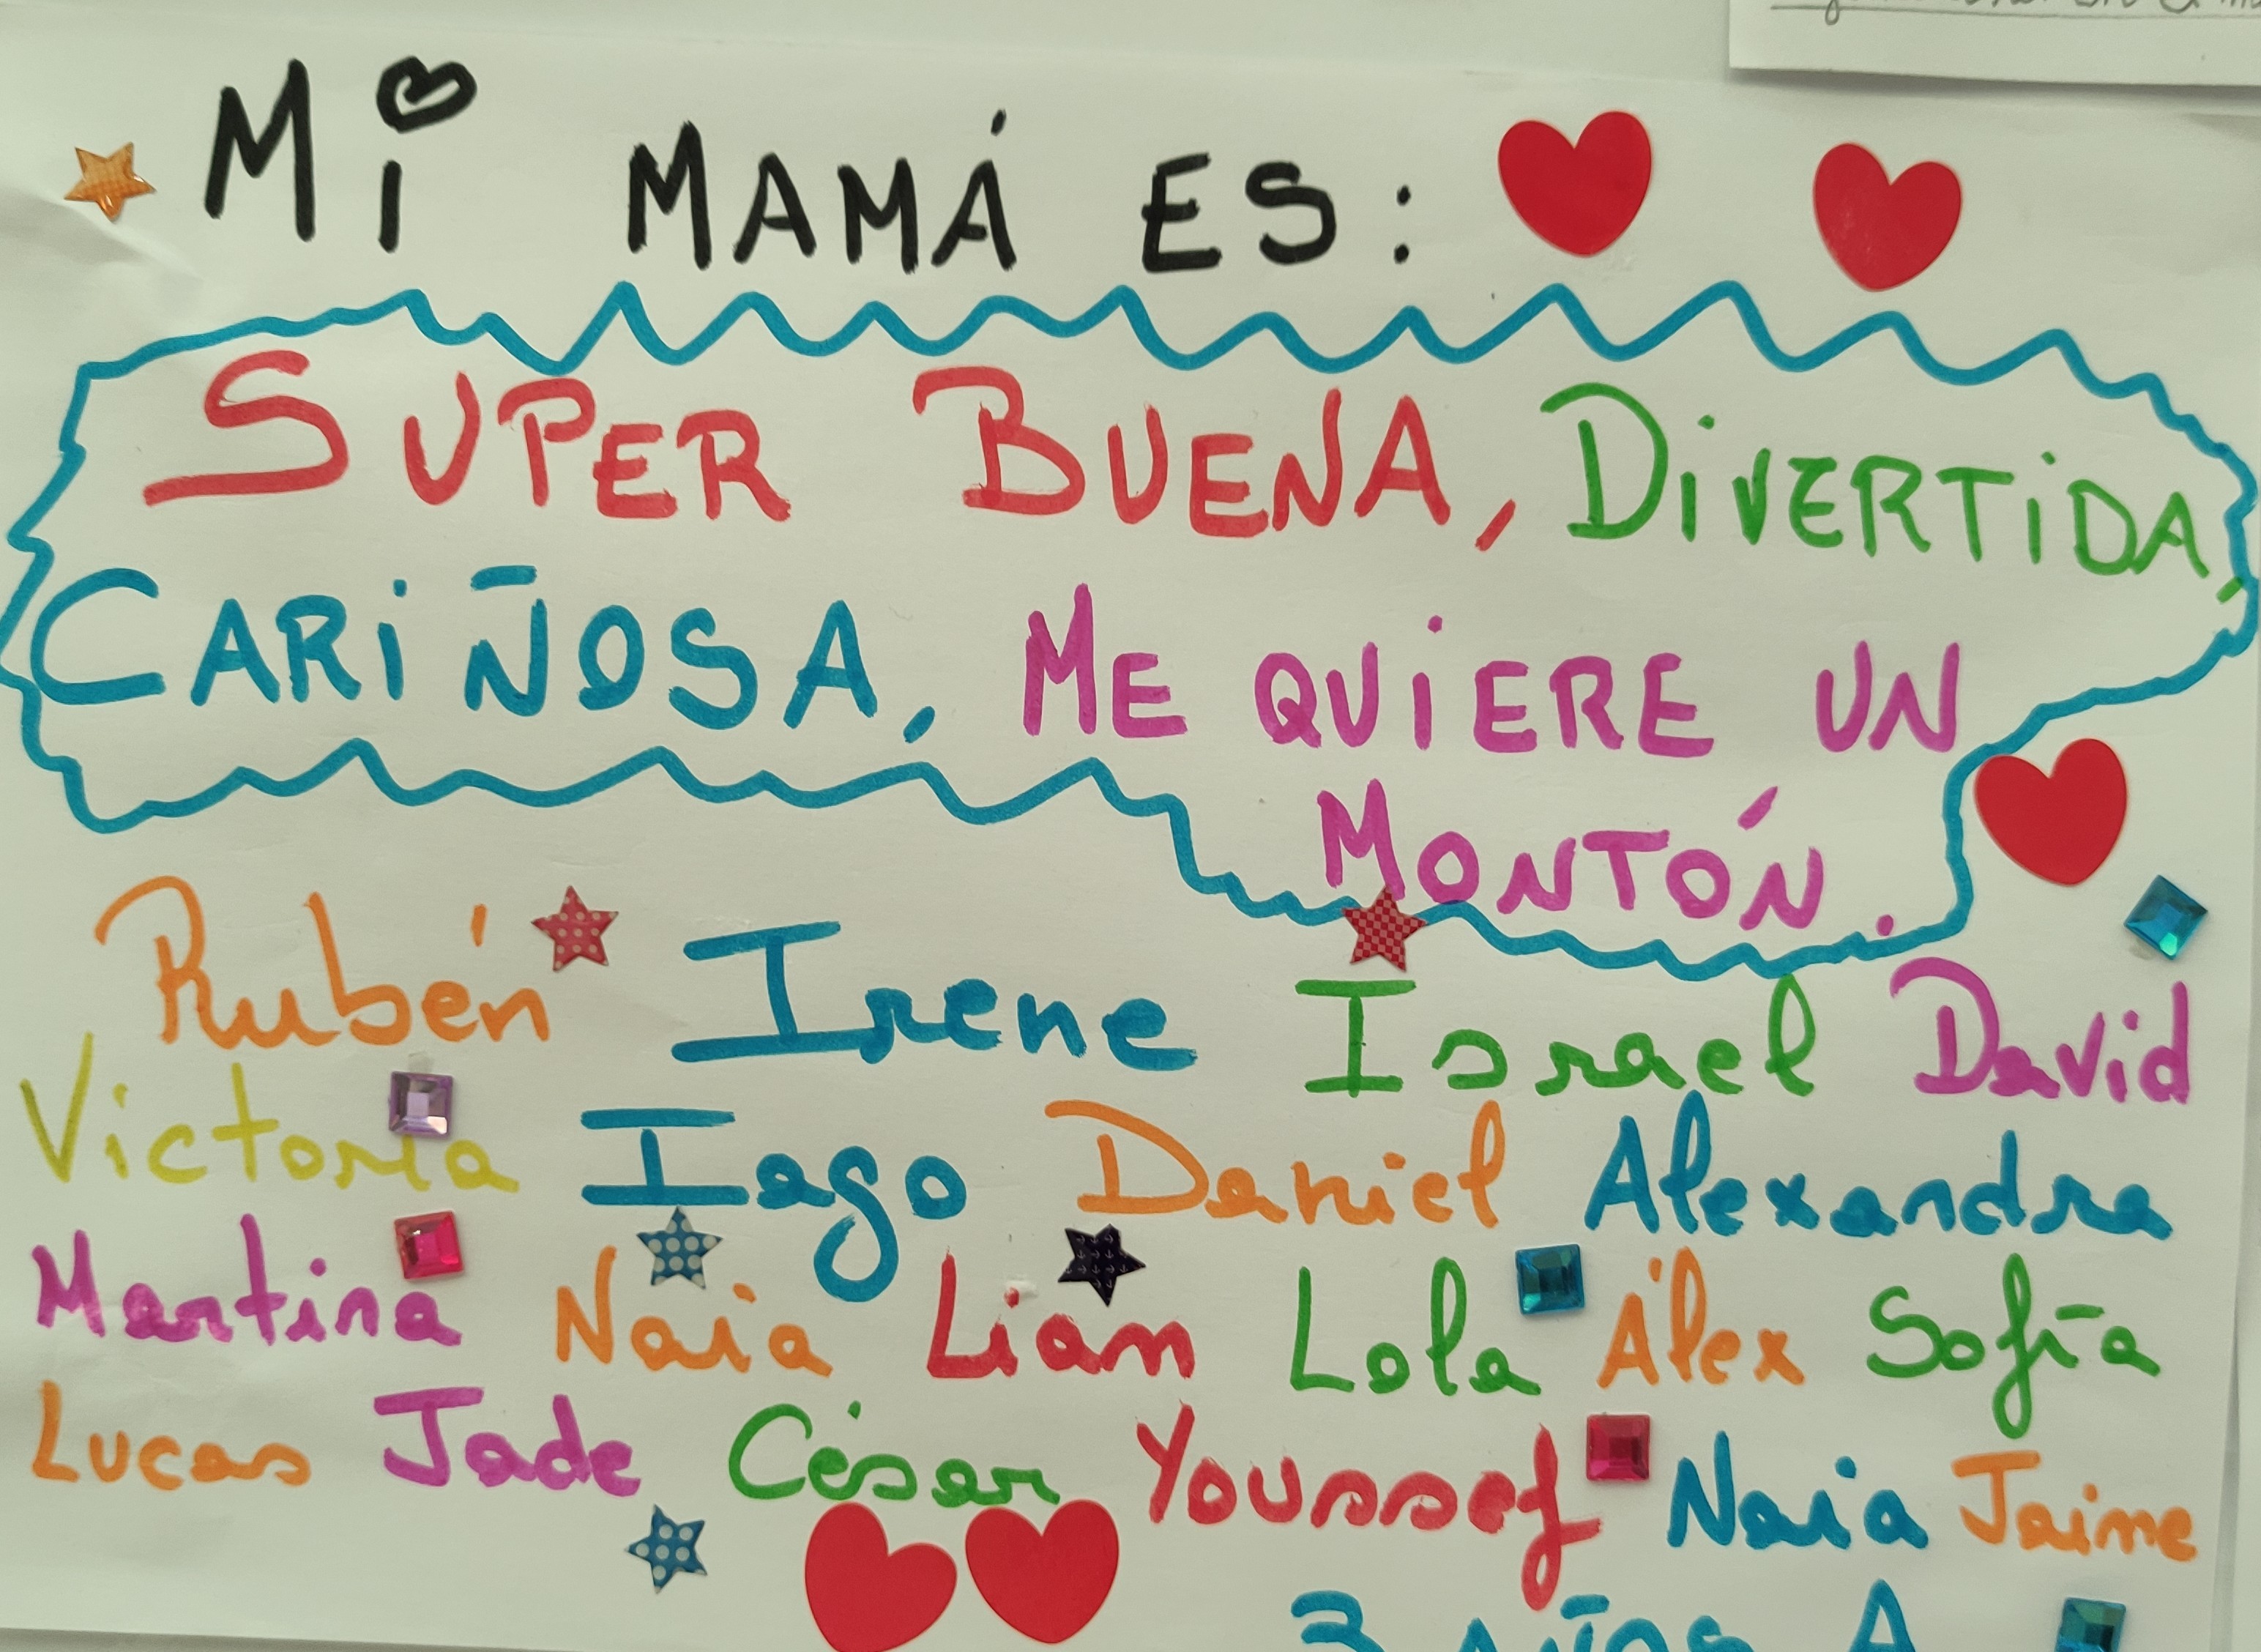 Mi MAMÁ ES:
SUPER BUENA, DiVERTiDA,
CARiÑOSA, ME QUiERE UN
MONTÓN.
Rubén Irene Israel David
Victoria Iago Daniel Alexandra
Martina Naia Liam Lola Álex Sofía
Lucas Jade César Youssef Naia Jaime
3 AÑOS A